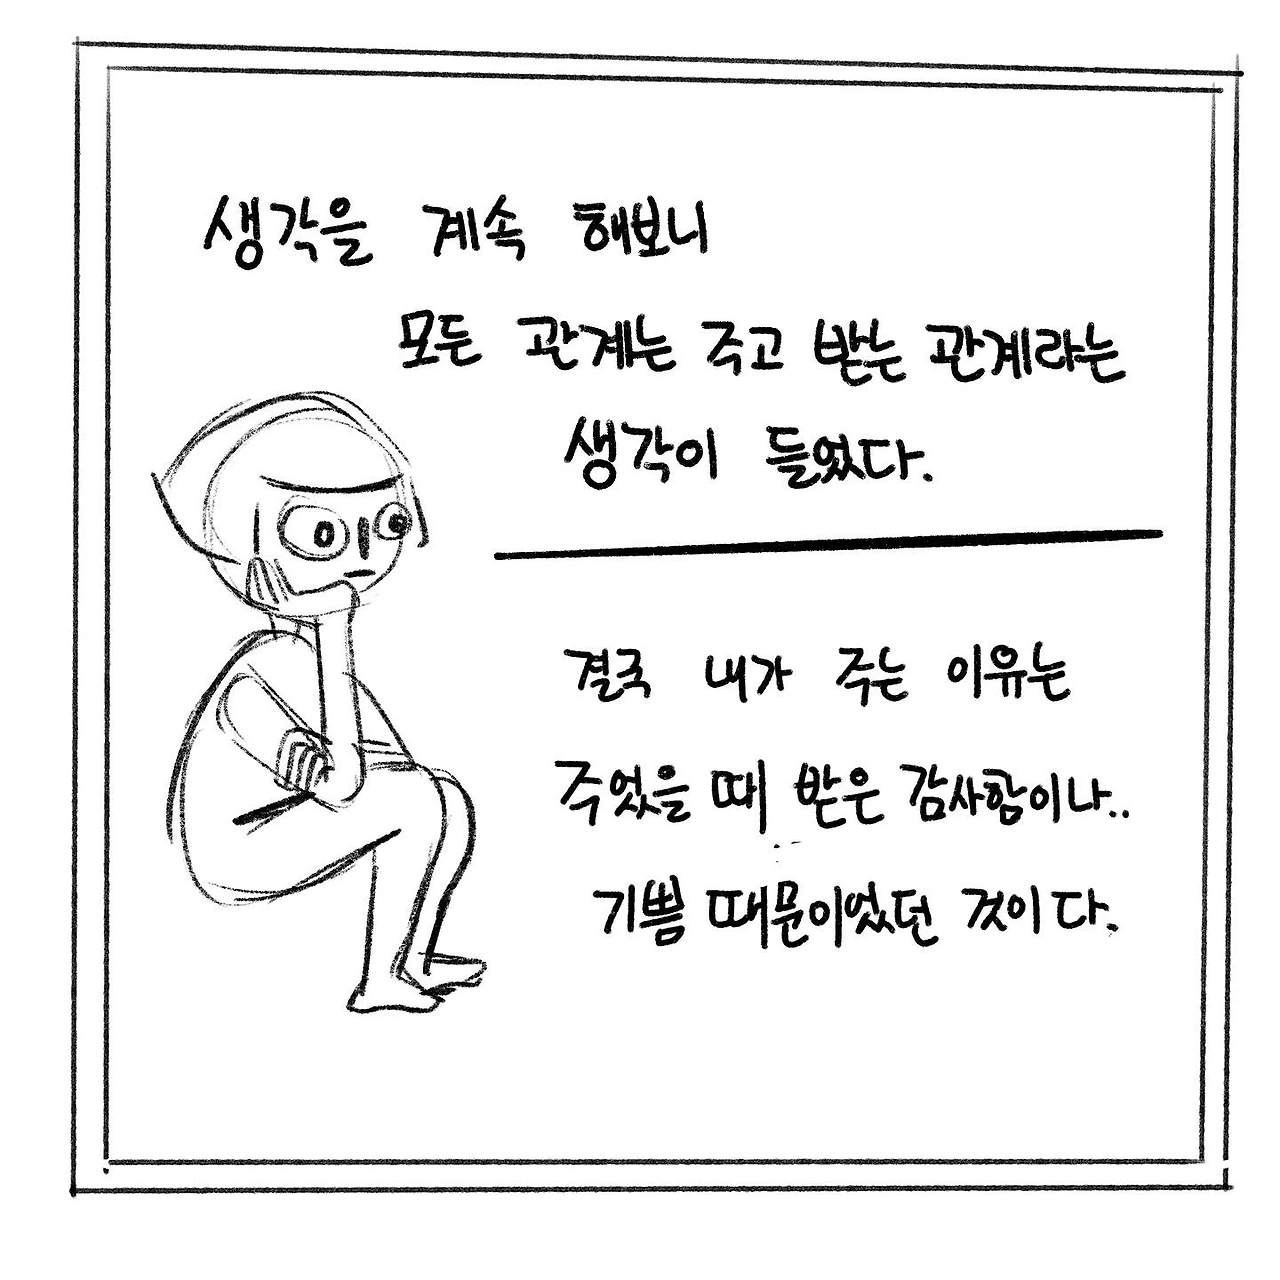 생각을 계속 해보니
모든 관계는 주고 받는 관계라는
생각이 들었다.
결국 내가 주는 이유는
주었을 때 받은 감사함이나..
기쁨 때문이었던 것이다.